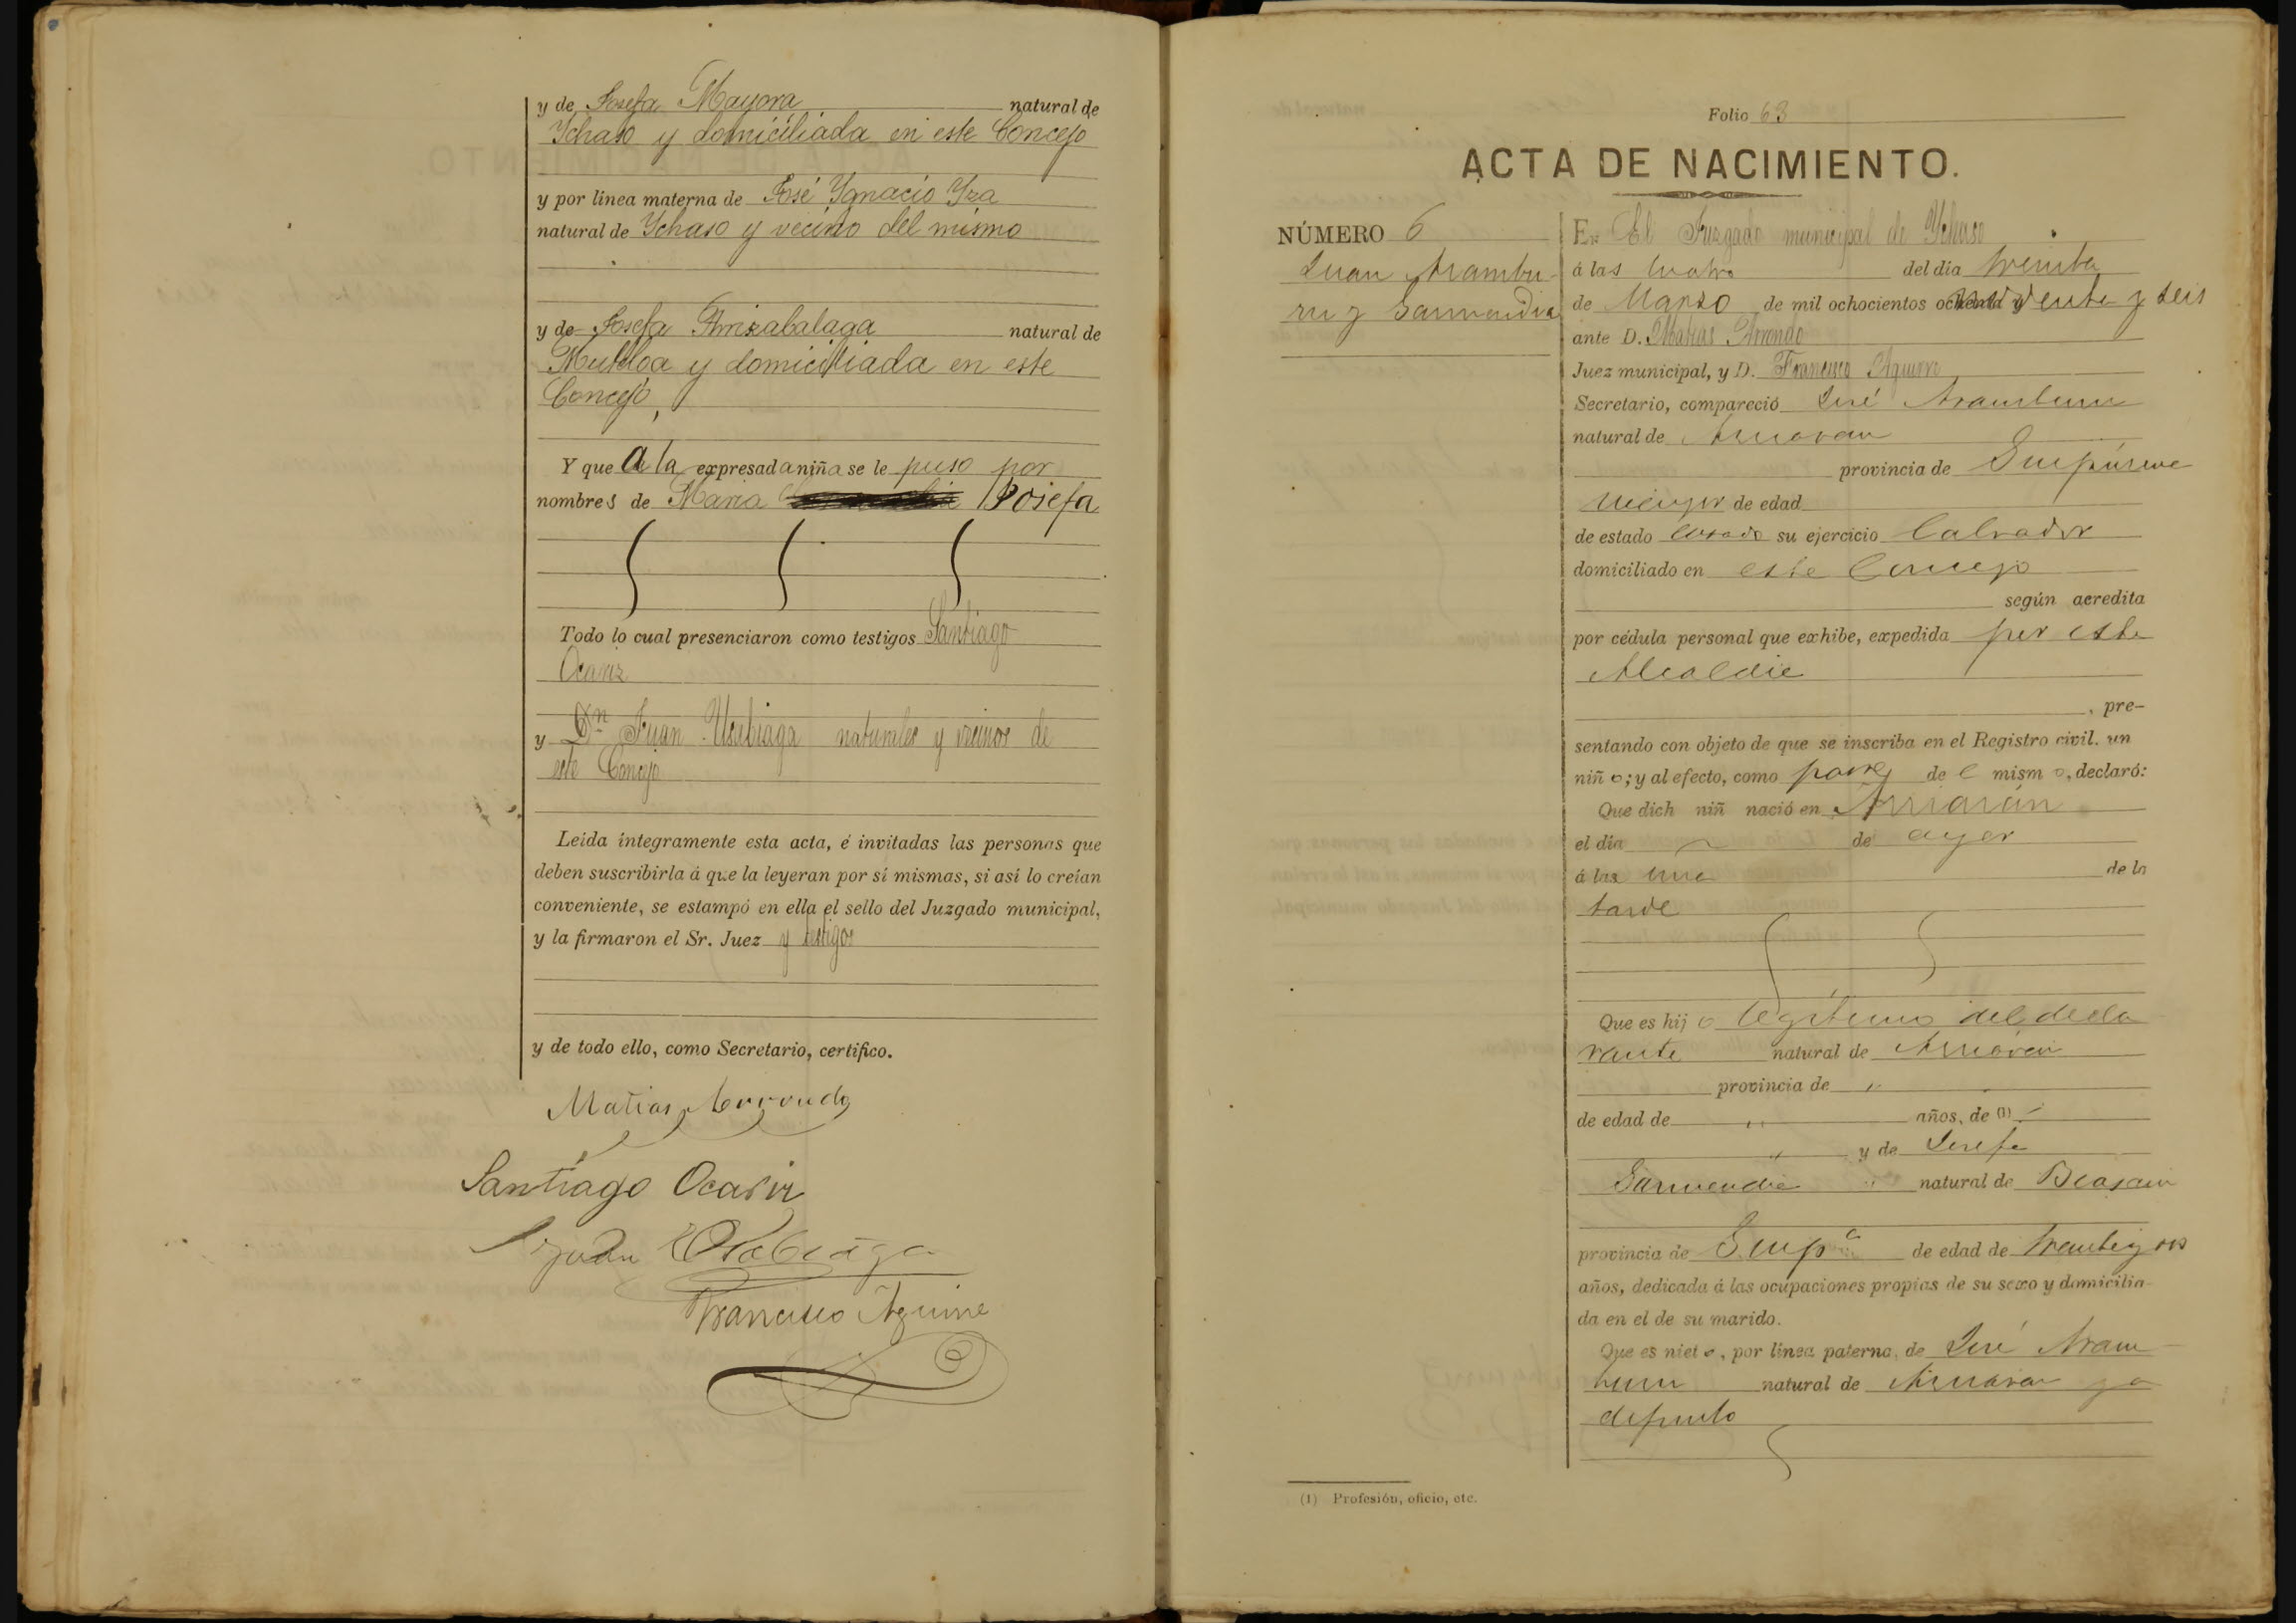 y de Josefa Mayora natural de
Ychaso y domiciliada en este Concejo
y por línea materna de José Ygnacio Yza
natural de Ychaso y vecino del mismo
y de Josefa Arrizabalaga natural de
Mutiloa y domiciliada en este
Concejo,
Y que a la expresada niña se le puso por
nombres de Maria Josefa
Todo lo cual presenciaron como testigos Santiago
Ocariz
y Dn Juan Usabiaga naturales y vecinos de
este Concejo
Leída íntegramente esta acta, é invitadas las personas que
deben suscribirla á que la leyeran por sí mismas, si así lo creían
conveniente, se estampó en ella el sello del Juzgado municipal,
y la firmaron el Sr. Juez y testigos
y de todo ello, como Secretario, certifico.
Matias Arrondo
Santiago Ocariz
Juan Usabiaga
Francisco Aguirre
Folio 63
ACTA DE NACIMIENTO.
NÚMERO 6
Juan Arambu-
ru y Garmendia
En El Juzgado municipal de Ychaso
á las cuatro del día treinta
de Marzo de mil ochocientos noventa y seis
ante D. Matias Arrondo
Juez municipal, y D. Francisco Aguirre
Secretario, compareció José Aramburu
natural de Arriaran
provincia de Guipúzcoa
mayor de edad
de estado casado su ejercicio labrador
domiciliado en este Concejo
según acredita
por cédula personal que exhibe, expedida por esta
Alcaldia
, pre-
sentando con objeto de que se inscriba en el Registro civil. un
niño; y al efecto, como padre de l mismo, declaró:
Que dich niñ nació en Arriarán
el día de ayer
á las una de la
tarde
Que es hijo legítimo del decla
rante natural de Arriaran
provincia de "
de edad de " años, de (1)
" y de Josefa
Garmendia " natural de Beasain
provincia de Guipa de edad de treinta y dos
años, dedicada á las ocupaciones propias de su sexo y domicilia-
da en el de su marido.
Que es nieto, por línea paterna, de José Aram-
buru natural de Arriaran ya
difunto
(1) Profesión, oficio, etc.